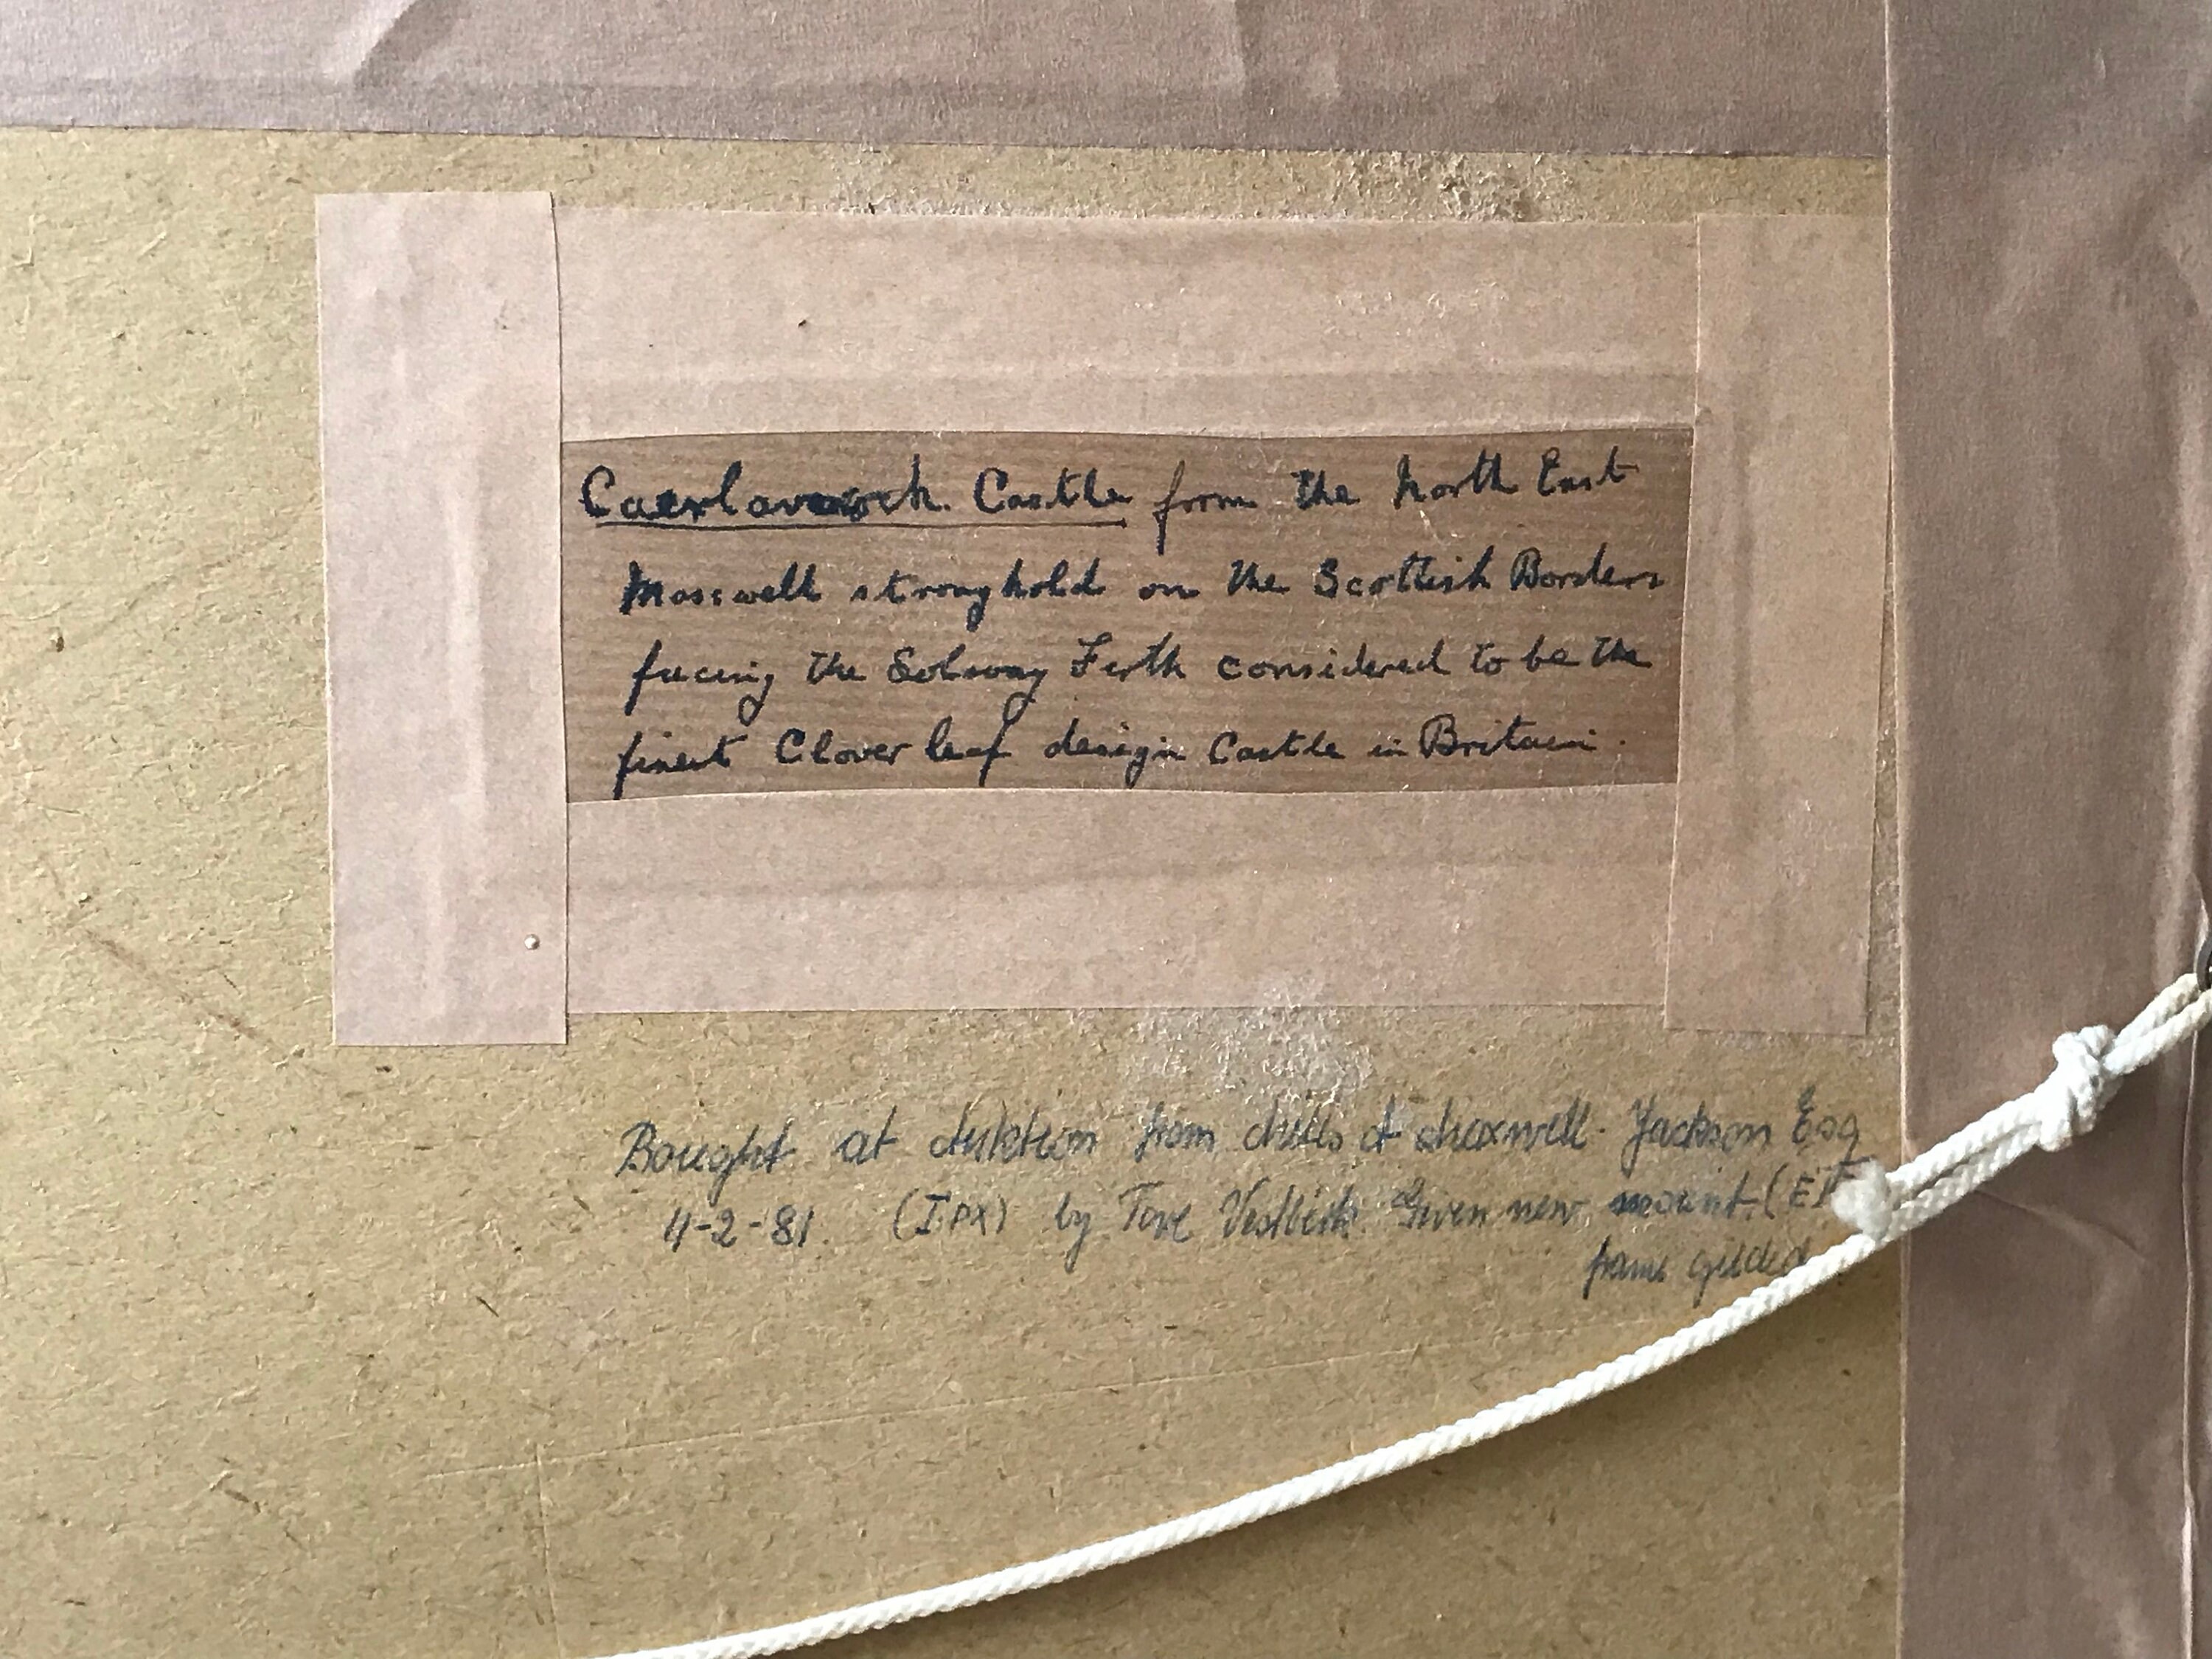 Caerlaverock Castle from the North East
Maxwell stronghold on the Scottish Borders
facing the Solway Firth considered to be the
finest Clover leaf design Castle in Britain.
Bought at Auktion from of Maxwell-Jackson Esq
4-2-81. (IPX) by Tove Given new mount.
frame gilded